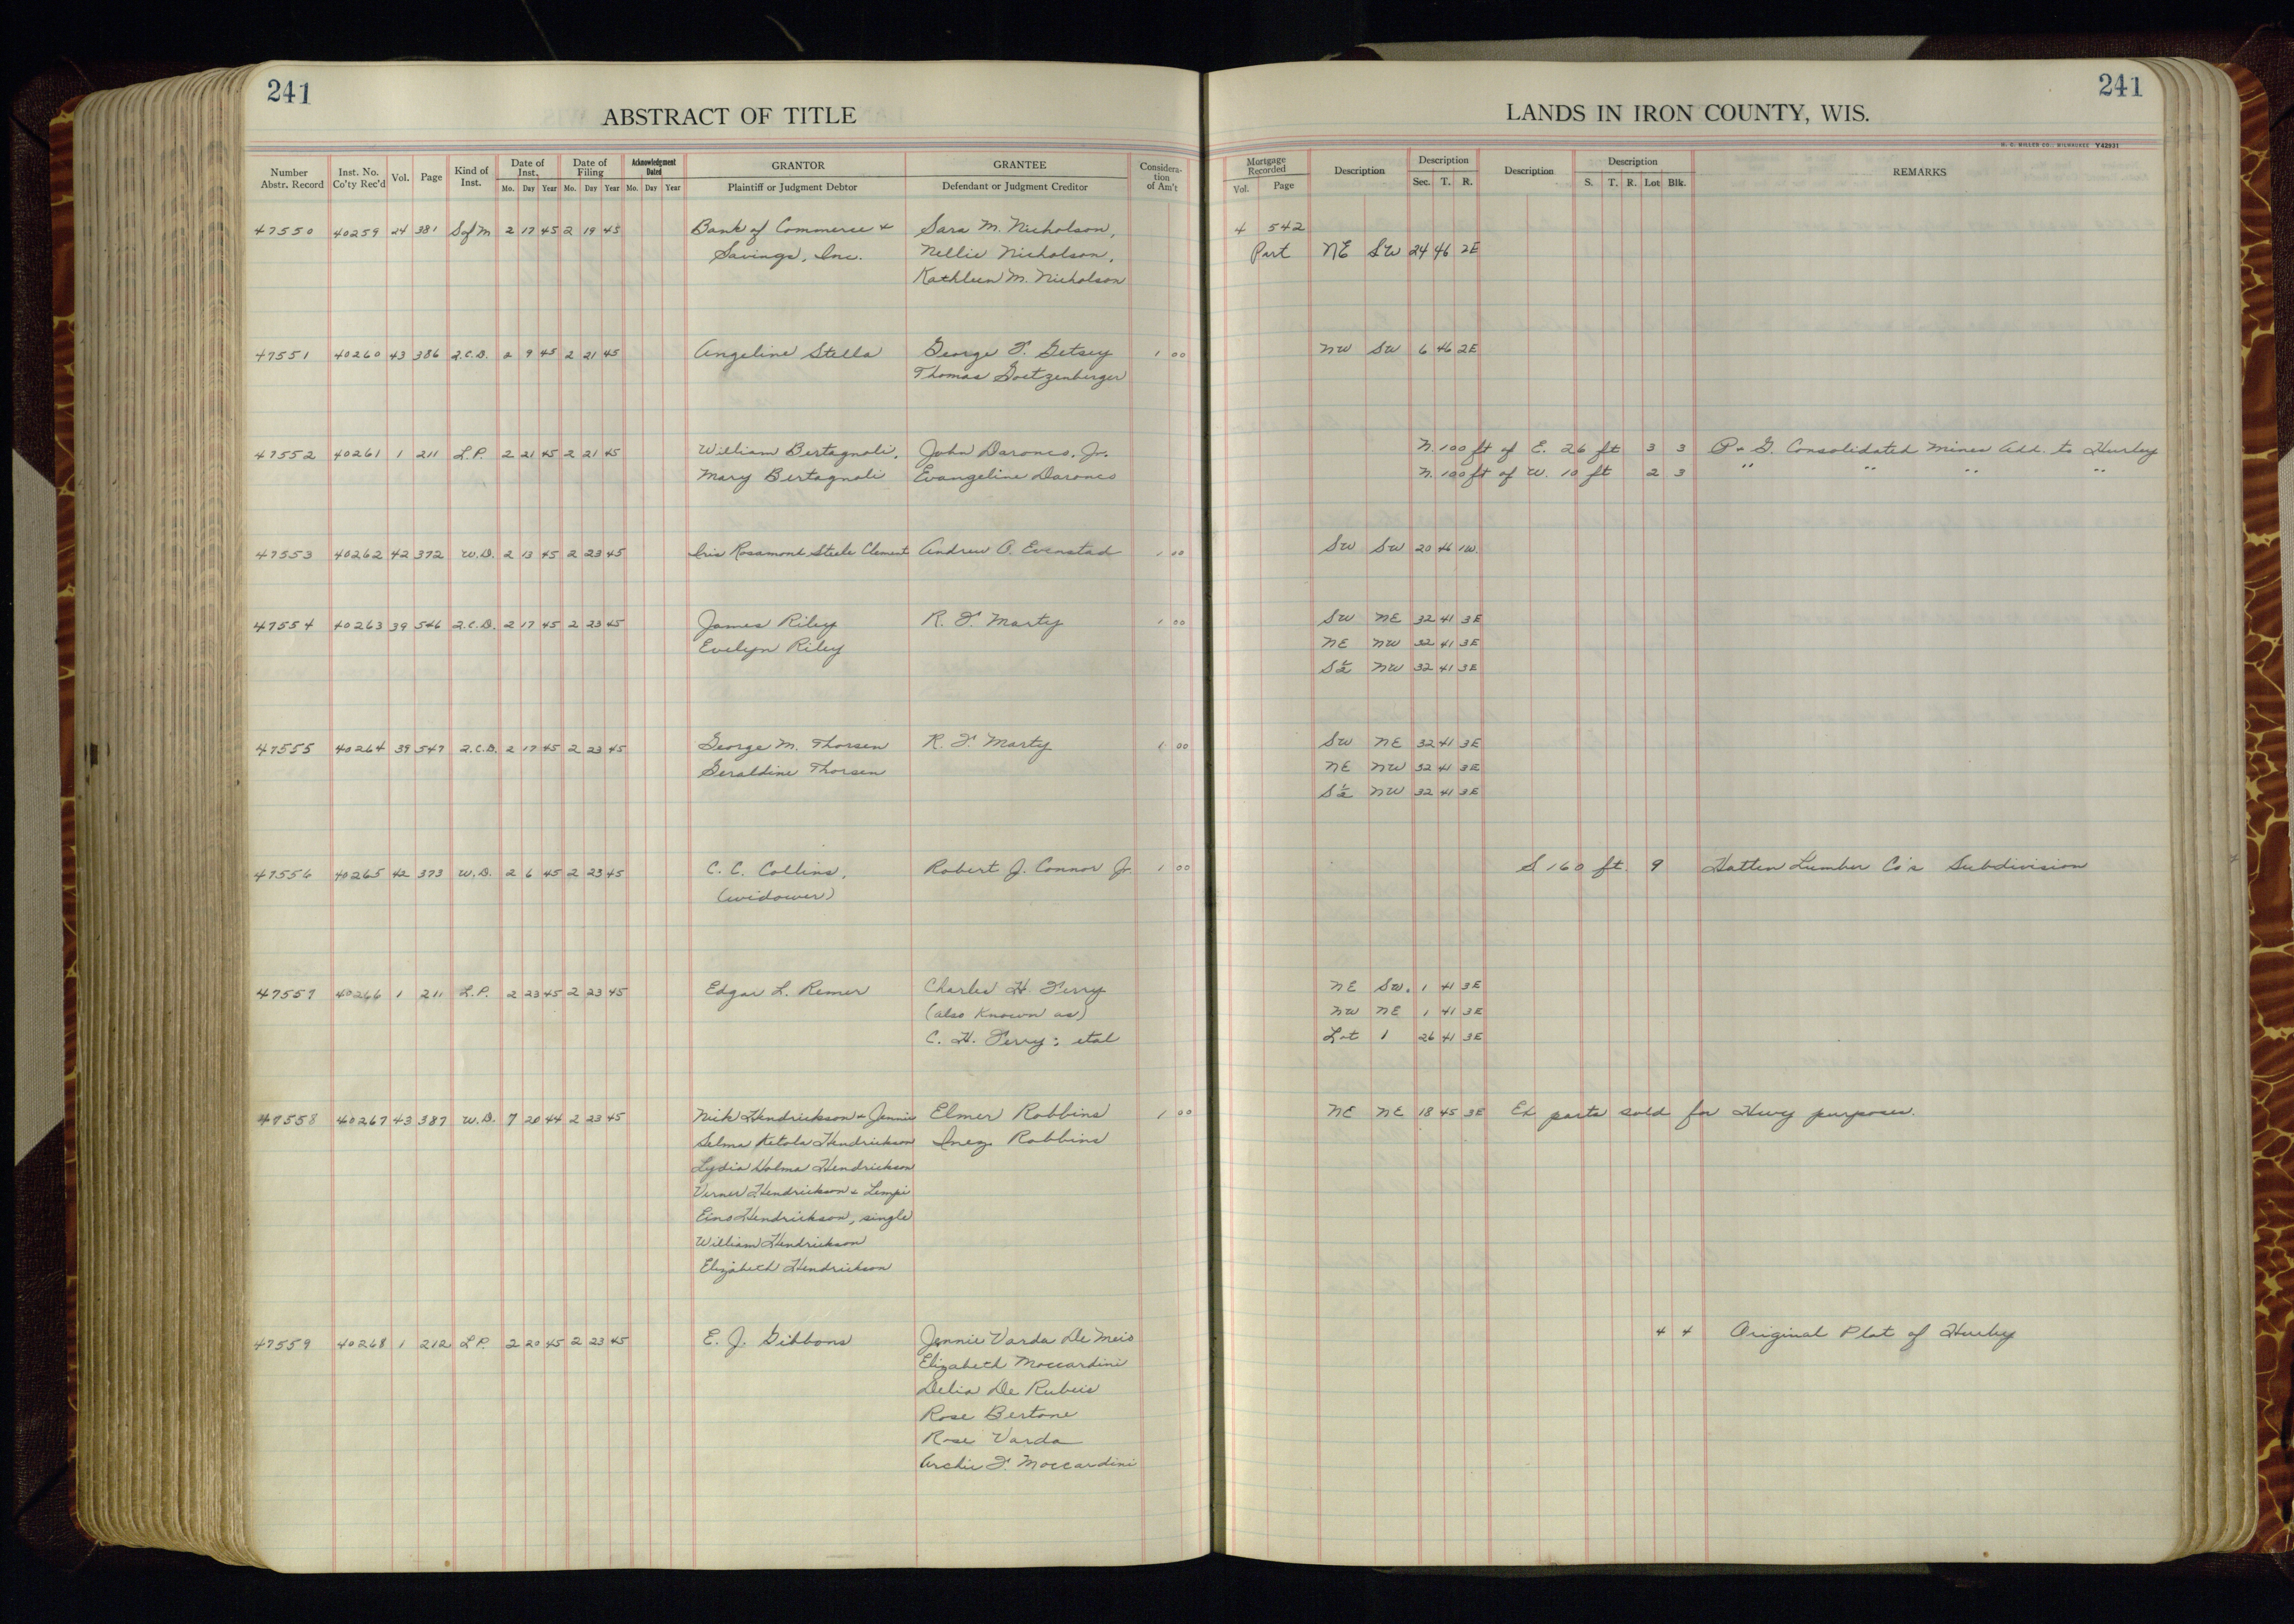 241
241
ABSTRACT OF TITLE
LANDS IN IRON COUNTY, WIS.
H. C. MILLER CO., MILWAUKEE Y42931
Number Abstr. Record | Inst. No. Co'ty Rec'd | Vol. | Page | Kind of Inst. | Date of Inst. Mo. Day Year | Date of Filing Mo. Day Year | Acknowledgment Dated Mo. Day Year | GRANTOR Plaintiff or Judgment Debtor | GRANTEE Defendant or Judgment Creditor | Consideration of Am't | Mortgage Recorded Vol. Page | Description | Description Sec. T. R. | Description | Description S. T. R. Lot Blk. | REMARKS
47550 40259 24 381 S of M 2 17 45 2 19 45 Bank of Commerce & Sara M. Nicholson, 4 542
Savings, Inc. Nellie Nicholson, Part NE SW 24 46 2E
Kathleen M. Nicholson
47551 40260 43 386 Q.C.D. 2 9 45 2 21 45 Angeline Stella George F. Getsey 1 00 NW SW 6 46 2E
Thomas Goetzenberger
47552 40261 1 211 L.P. 2 21 45 2 21 45 William Bertagnoli, John Darones, Jr. N. 100 ft of E. 26 ft 3 3 P & G. Consolidated Mines Add. to Hurley
Mary Bertagnoli Evangeline Darones N. 100 ft of W. 10 ft 2 3 " " " "
47553 40262 42 372 W.D. 2 13 45 2 23 45 Iris Rosamond Steele Clement Andrew O. Evenstad 1 00 SW SW 20 46 1W.
47554 40263 39 546 Q.C.D. 2 17 45 2 23 45 James Riley R. F. Marty 1 00 SW NE 32 41 3E
Evelyn Riley NE NW 32 41 3E
S½ NW 32 41 3E
47555 40264 39 547 Q.C.D. 2 17 45 2 23 45 George M. Thorsen R. F. Marty 1 00 SW NE 32 41 3E
Geraldine Thorsen NE NW 32 41 3E
S½ NW 32 41 3E
47556 40265 42 373 W.D. 2 6 45 2 23 45 C. C. Collins, Robert J. Connor Jr. 1 00 S 160 ft. 9 Hatten Lumber Co's Subdivision
(widower)
47557 40266 1 211 L.P. 2 23 45 2 23 45 Edgar L. Remer Charles H. Terry NE SW. 1 41 3E
(also known as) NW NE 1 41 3E
C. H. Terry; etal Lot 1 26 41 3E
47558 40267 43 387 W.D. 7 20 44 2 23 45 Nick Hendrickson & Jennie Elmer Robbins 1 00 NE NE 18 45 3E Ex parts sold for Hwy purposes.
Selma Ketola Hendrickson Inez Robbins
Lydia Holma Hendrickson
Verner Hendrickson & Lempi
Eino Hendrickson, single
William Hendrickson
Elizabeth Hendrickson
47559 40268 1 212 L.P. 2 20 45 2 23 45 E. J. Gibbons Jennie Varda De Meio 4 4 Original Plat of Hurley
Elizabeth Moccardini
Delia De Rubeis
Rose Bertone
Rose Varda
Archie F. Moccardini